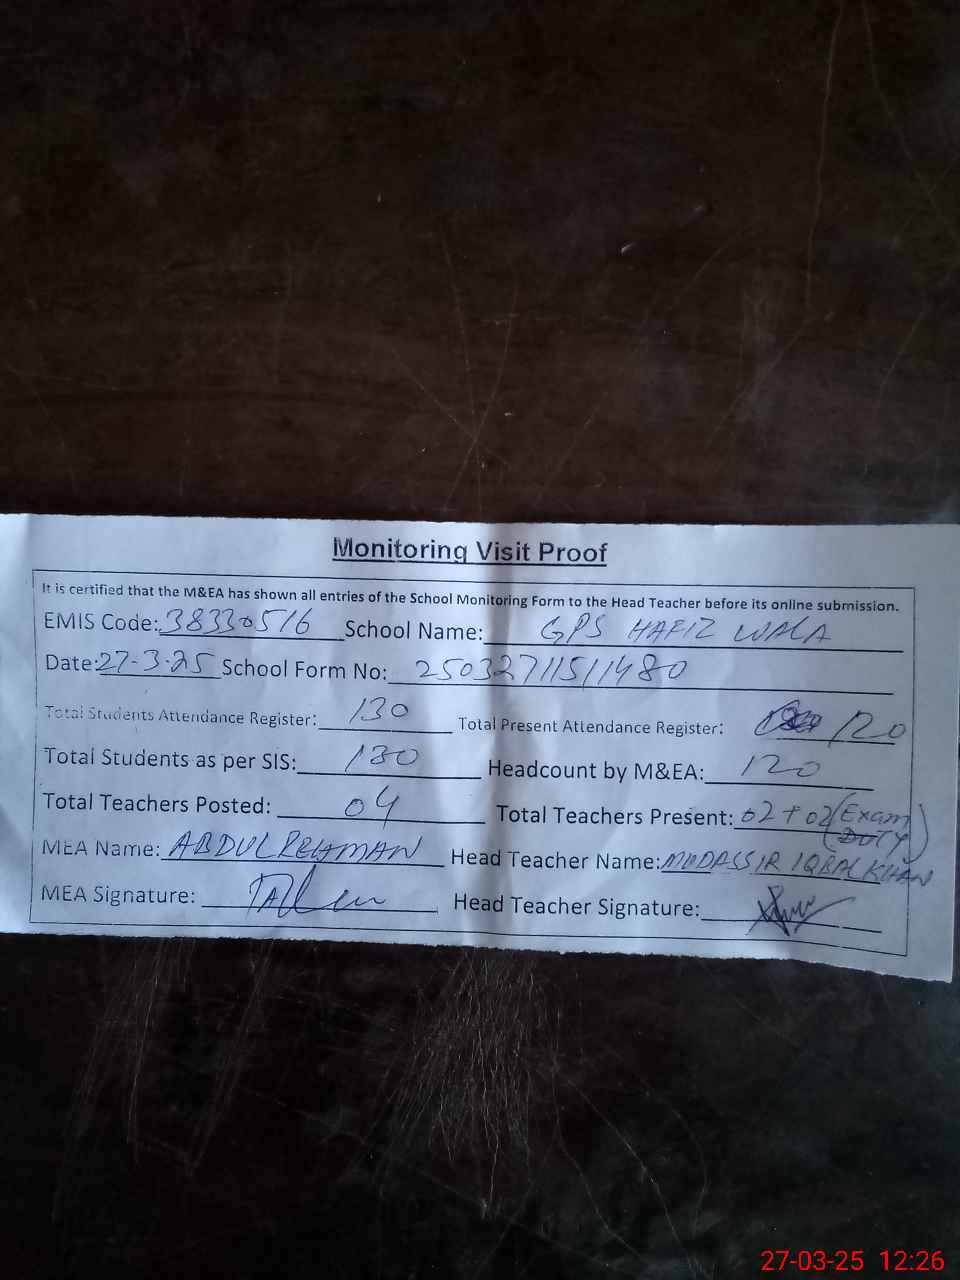 Monitoring Visit Proof
It is certified that the M&EA has shown all entries of the School Monitoring Form to the Head Teacher before its online submission.
EMIS Code: 38330516 School Name: GPS HAFIZ WALA
Date: 27-3-25 School Form No: 25032711511480
Total Students Attendance Register: 130 Total Present Attendance Register: 120
Total Students as per SIS: 130 Headcount by M&EA: 120
Total Teachers Posted: 04 Total Teachers Present: 02 + 02 (Exam DUTY)
MEA Name: ABDUL REHMAN Head Teacher Name: MUDASSIR IQBAL KHAN
MEA Signature: Head Teacher Signature:
27-03-25 12:26